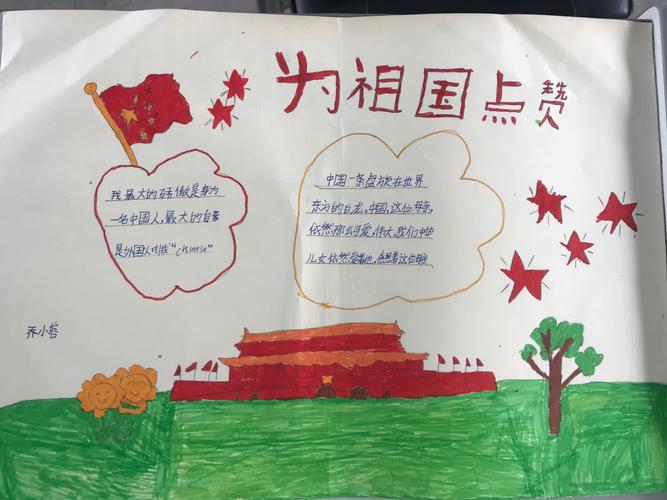 为祖国点赞
我最大的骄傲是身为
一名中国人,最大的自豪
是外国人叫我“Chinese”
中国一条盘旋在世界
东方的巨龙。中国,这位母亲,
依然那么可爱,伟大,我们中华
儿女依然爱着她,感恩着这位母亲
乔小容